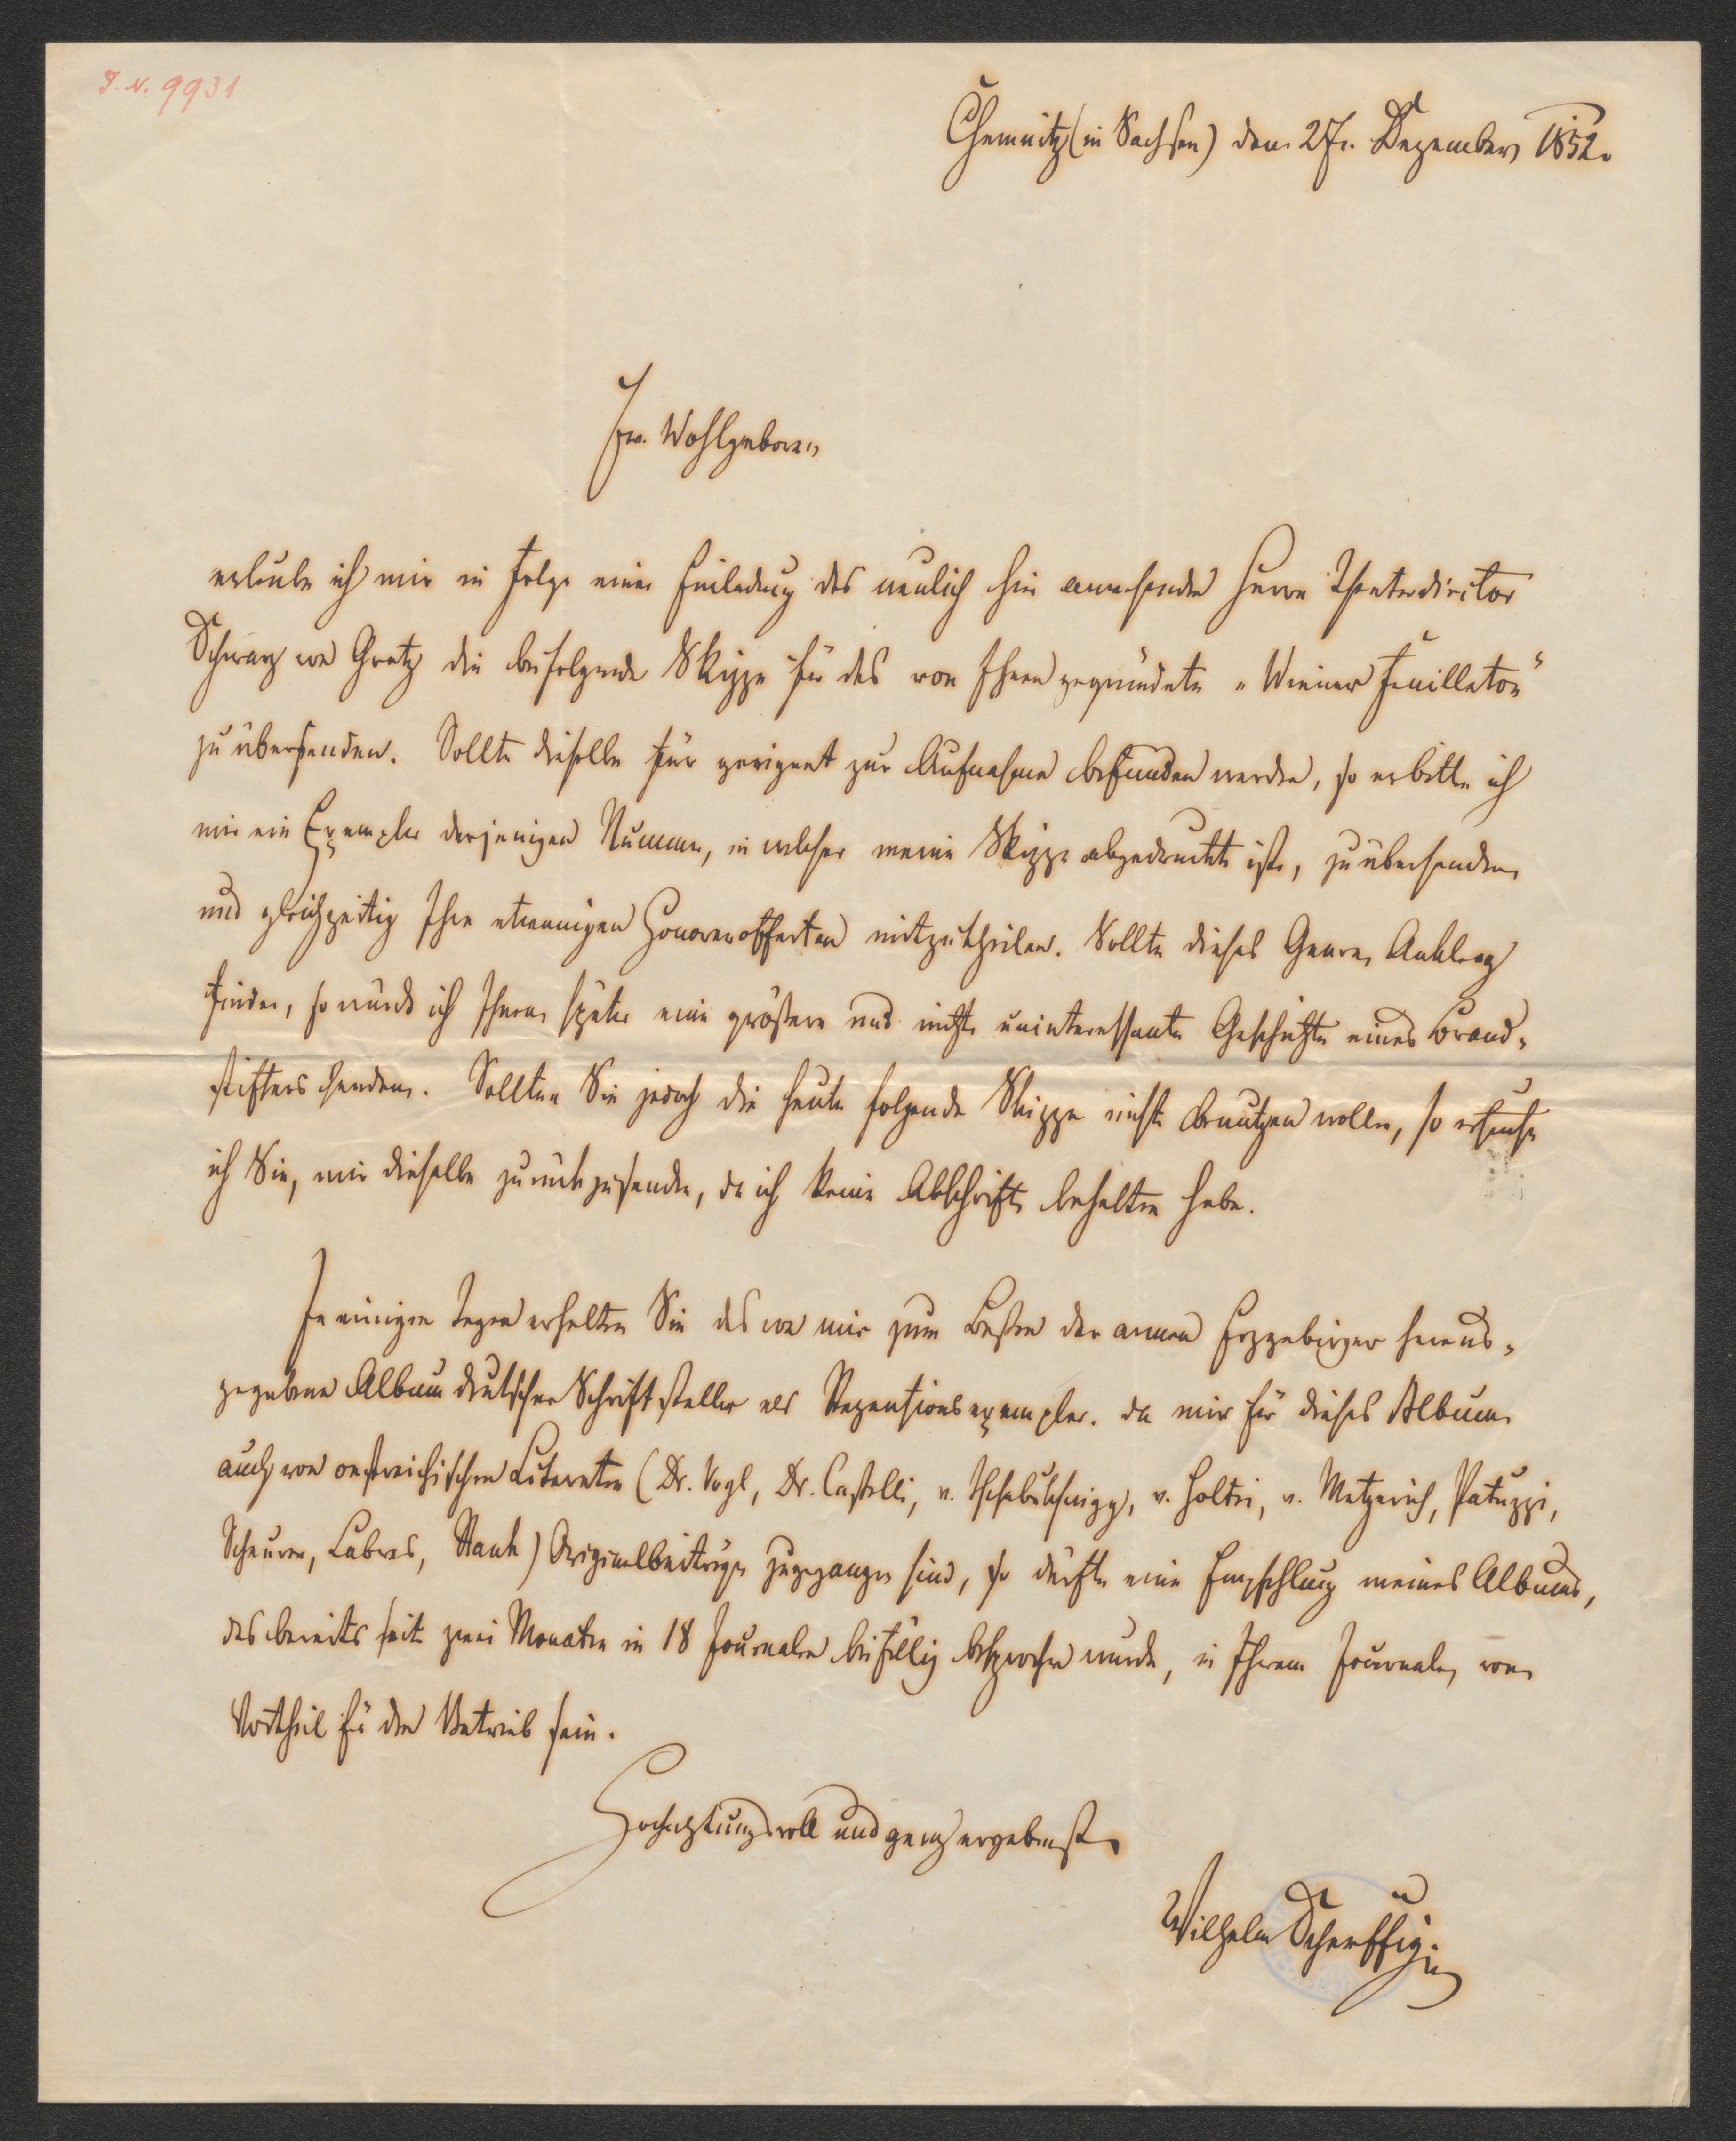 I. N. 9931
Chemnitz (in Sachsen) den 27. Dezember 1852.
Ew. Wohlgeboren
erlaube ich mir in Folge einer Einladung des neulich hier anwesenden Herrn Theaterdirector
Schwarz von Gratz die beifolgende Skizze für das von Ihnen gegründete „Wiener Feuilleton"
zu übersenden. Sollte dieselbe für geeignet zur Aufnahme befunden werden, so erbitte ich
mir ein Exemplar derjenigen Nummer, in welcher meine Skizze abgedruckt ist, zu übersenden
und gleichzeitig Ihre etwanigen Honorarofferten mitzutheilen. Sollte dieses Genre Anklang
finden, so würde ich Ihnen später eine größere und nicht uninteressante Geschichte eines Brand-
stifters senden. Sollten Sie jedoch die heute folgende Skizze nicht benutzen wollen, so ersuche
ich Sie, mir dieselbe zurückzusenden, da ich keine Abschrift behalten habe.
In einigen Tagen erhalten Sie das von mir zum Besten der armen Erzgebirger heraus-
gegebene Album deutscher Schriftsteller als Rezensionsexemplar. Da mir für dieses Album
auch von oestreichischen Literaten (Dr. Vogl, Dr. Castelli, v. Tschabuschnigg, v. Holtei, v. Metzerich, Patuzzi,
Scheurer, Labres, Rank) Originalbeiträge zugegangen sind, so dürfte eine Empfehlung meines Albums,
das bereits seit zwei Monaten in 18 Journalen beifällig besprochen wurde, in Ihrem Journale, von
Vortheil für den Vertrieb sein.
Hochachtungsvoll und ganz ergebenst
Wilhelm Scherffig